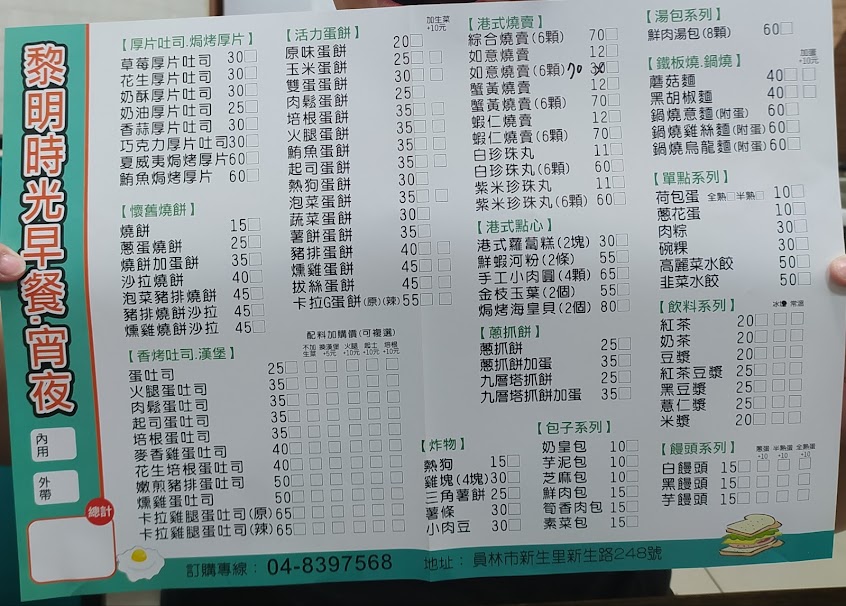 黎明時光早餐.宵夜
內用
外帶
總計
【厚片吐司.焗烤厚片】
草莓厚片吐司 30
花生厚片吐司 30
奶酥厚片吐司 30
奶油厚片吐司 25
香蒜厚片吐司 30
巧克力厚片吐司 30
夏威夷焗烤厚片 60
鮪魚焗烤厚片 60
【懷舊燒餅】
燒餅 15
蔥蛋燒餅 25
燒餅加蛋餅 35
沙拉燒餅 40
泡菜豬排燒餅 45
豬排燒餅沙拉 45
燻雞燒餅沙拉 45
【香烤吐司.漢堡】
配料加購價(可複選)
不加生菜 換漢堡+5元 火腿+10元 起士+10元 培根+10元
蛋吐司 25
火腿蛋吐司 35
肉鬆蛋吐司 35
起司蛋吐司 35
培根蛋吐司 35
麥香雞蛋吐司 40
花生培根蛋吐司 40
嫩煎豬排蛋吐司 50
燻雞蛋吐司 50
卡拉雞腿蛋吐司(原) 65
卡拉雞腿蛋吐司(辣) 65
【活力蛋餅】
加生菜+10元
原味蛋餅 20
玉米蛋餅 30
雙蛋蛋餅 30
肉鬆蛋餅 35
培根蛋餅 35
火腿蛋餅 35
鮪魚蛋餅 35
起司蛋餅 35
熱狗蛋餅 30
泡菜蛋餅 35
蔬菜蛋餅 30
薯餅蛋餅 35
豬排蛋餅 40
燻雞蛋餅 45
拔絲蛋餅 45
卡拉G蛋餅(原)(辣) 55
【港式燒賣】
綜合燒賣(6顆) 70
如意燒賣 12
如意燒賣(6顆) 70 30
蟹黃燒賣 12
蟹黃燒賣(6顆) 70
蝦仁燒賣 12
蝦仁燒賣(6顆) 70
白珍珠丸 11
白珍珠丸(6顆) 60
紫米珍珠丸 11
紫米珍珠丸(6顆) 60
【港式點心】
港式蘿蔔糕(2塊) 30
鮮蝦河粉(2條) 55
手工小肉圓(4顆) 65
金枝玉葉(2個) 55
焗烤海皇貝(2個) 80
【蔥抓餅】
蔥抓餅 25
蔥抓餅加蛋 35
九層塔抓餅 25
九層塔抓餅加蛋 35
【炸物】
熱狗 15
雞塊(4塊) 30
三角薯餅 25
薯條 30
小肉豆 30
【包子系列】
奶皇包 10
芋泥包 10
芝麻包 10
鮮肉包 15
筍香肉包 15
素菜包 15
【湯包系列】
鮮肉湯包(8顆) 60
【鐵板燒.鍋燒】
加蛋+10元
蘑菇麵 40
黑胡椒麵 40
鍋燒意麵(附蛋) 60
鍋燒雞絲麵(附蛋) 60
鍋燒烏龍麵(附蛋) 60
【單點系列】
荷包蛋 全熟 半熟 10
蔥花蛋 10
肉粽 30
碗粿 30
高麗菜水餃 50
韭菜水餃 50
【飲料系列】
冰 常溫
紅茶 20
奶茶 20
豆漿 20
紅茶豆漿 25
黑豆漿 25
薏仁漿 25
米漿 20
【饅頭系列】
蔥蛋+10 半熟蛋+10 全熟蛋+10
白饅頭 15
黑饅頭 15
芋饅頭 15
訂購專線：04-8397568
地址：員林市新生里新生路248號